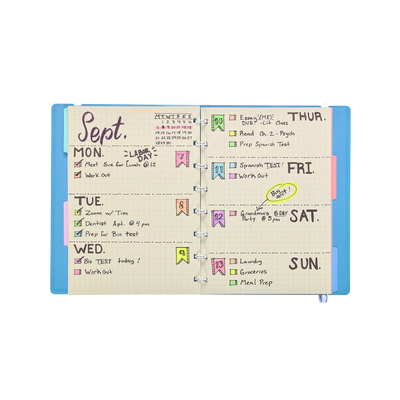 Sept.
M T W T F S S
MON.
LABOR
DAY
7
Meet Sue for lunch @ 12
Work Out
TUE.
8
Zoom w/ Tim
Dentist Apt. @ 4 pm
Prep for Bio test
WED.
9
Bio TEST today!
Work Out
10
THUR.
Essay (ME) 
Due - Lit Class
Read Ch. 2 - Psych
Prep Spanish Test
11
FRI.
Spanish TEST!
Work Out
12
SAT.
Buy
gift!
Grandma's B-DAY
Party @ 5 pm
13
SUN.
Laundry
Groceries
Meal Prep